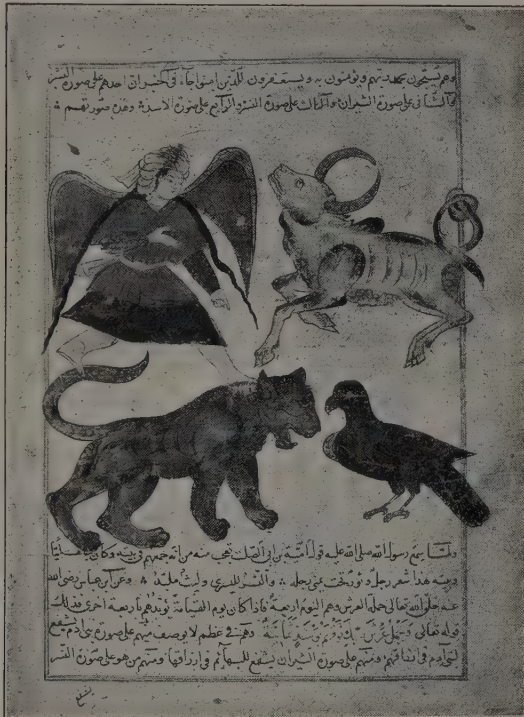 وهم يسبحون بحمد ربهم ويؤمنون به ويستغفرون للذين امنوا جاء في الخبر ان احدهم على صورة البشر
والثانى على صورة الثيران والثالث على صورة النسر والرابع على صورة الاسد وهذه صورتهم
ولما سمع رسول الله صلى الله عليه قول امية بن ابى الصلت تعجب منه من انه جمعهم فى بيته وكان
وبيته هذا شعر رجل وثور تحت يمنى رجله والنسر لليسرى وليث ملبد وعن ابن عباس رضى الله
عنه خلق الله تعالى حملة العرش وهم اليوم اربعة فاذا كان يوم القيامة يؤيدهم باربعة اخرى فذلك
قوله تعالى ويحمل عرش ربك فوقهم يومئذ ثمانية وهم فى عظم لا يوصف منهم على صورة بنى ادم يشفع
لبنى ادم فى ارزاقهم ومنهم على صورة الثيران يشفع للبهائم فى ارزاقها ومنهم من هو على صورة النسر
يشفع